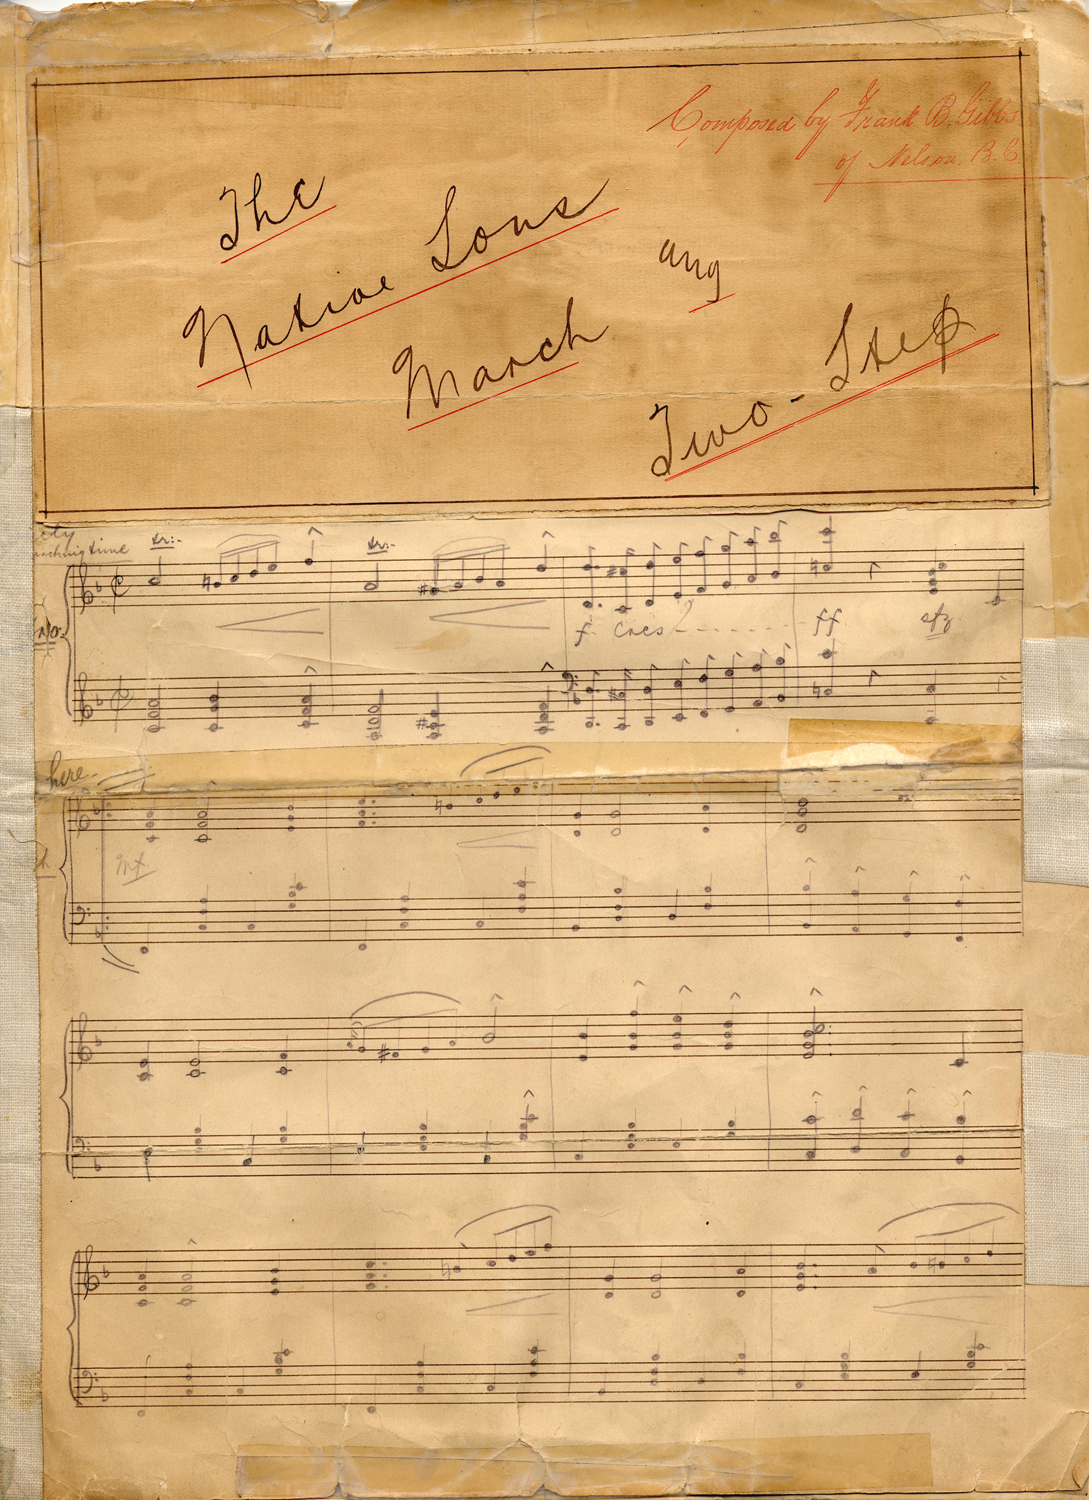 Composed by Frank B. Gibbs
of Nelson. B.C.
The
Native Sons
and
March
Two-Step
marching time
tr:- tr:-
f. Cres - - - - - ff sfz
here.
Mf.